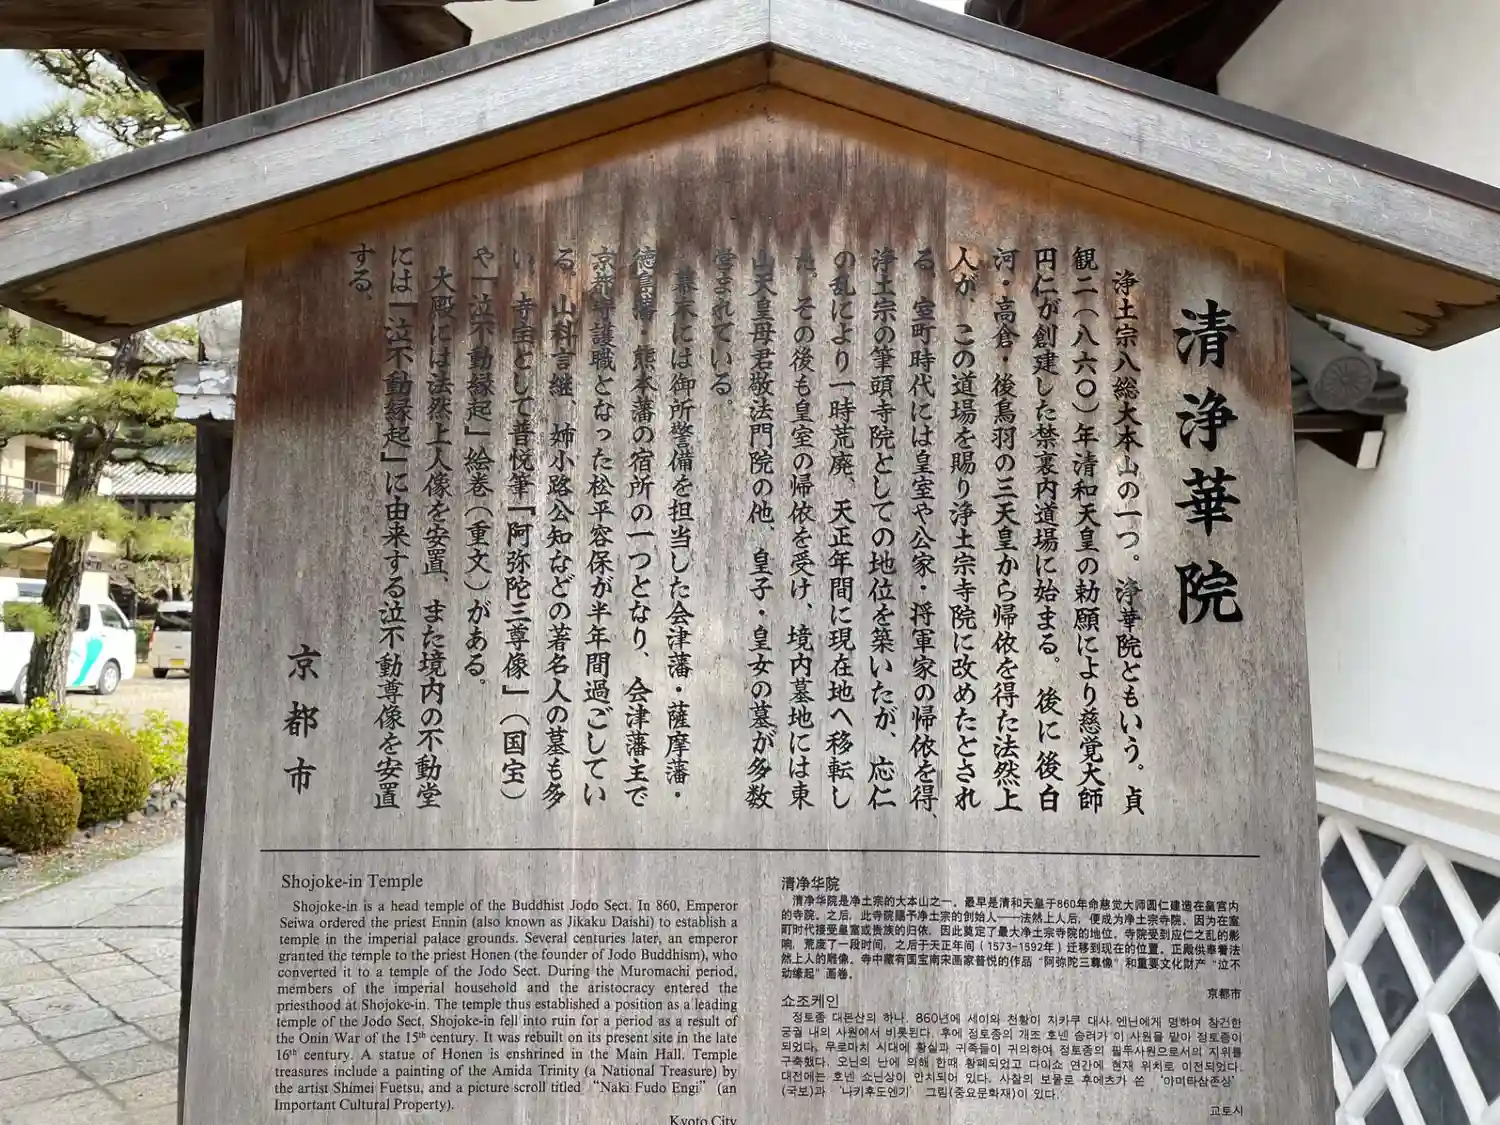 清浄華院
浄土宗八総大本山の一つ。浄華院ともいう。貞
観二(八六〇)年清和天皇の勅願により慈覚大師
円仁が創建した禁裏内道場に始まる。後に後白
河・高倉・後鳥羽の三天皇から帰依を得た法然上
人が、この道場を賜り浄土宗寺院に改めたとされ
る。室町時代には皇室や公家・将軍家の帰依を得、
浄土宗の筆頭寺院としての地位を築いたが、応仁
の乱により一時荒廃、天正年間に現在地へ移転し
た。その後も皇室の帰依を受け、境内墓地には東
山天皇母君敬法門院の他、皇子・皇女の墓が多数
営まれている。
幕末には御所警備を担当した会津藩・薩摩藩・
徳島藩・熊本藩の宿所の一つとなり、会津藩主で
京都守護職となった松平容保が半年間過ごしてい
る。山科言継、姉小路公知などの著名人の墓も多
い。寺宝として普悦筆「阿弥陀三尊像」(国宝)
や「泣不動縁起」絵巻(重文)がある。
大殿には法然上人像を安置、また境内の不動堂
には「泣不動縁起」に由来する泣不動尊像を安置
する。
京都市
Shojoke-in Temple
Shojoke-in is a head temple of the Buddhist Jodo Sect. In 860, Emperor
Seiwa ordered the priest Ennin (also known as Jikaku Daishi) to establish a
temple in the imperial palace grounds. Several centuries later, an emperor
granted the temple to the priest Honen (the founder of Jodo Buddhism), who
converted it to a temple of the Jodo Sect. During the Muromachi period,
members of the imperial household and the aristocracy entered the
priesthood at Shojoke-in. The temple thus established a position as a leading
temple of the Jodo Sect. Shojoke-in fell into ruin for a period as a result of
the Onin War of the 15th century. It was rebuilt on its present site in the late
16th century. A statue of Honen is enshrined in the Main Hall. Temple
treasures include a painting of the Amida Trinity (a National Treasure) by
the artist Shimei Fuetsu, and a picture scroll titled “Naki Fudo Engi” (an
Important Cultural Property).
Kyoto City
清净华院
清净华院是净土宗的大本山之一。最早是清和天皇于860年命慈觉大师圆仁建造在皇宫内
的寺院。之后，此寺院赐予净土宗的创始人——法然上人后，便成为净土宗寺院。因为在室
町时代接受皇室或贵族的归依，因此奠定了最大净土宗寺院的地位。寺院受到应仁之乱的影
响，荒废了一段时间，之后于天正年间（1573-1592年）迁移到现在的位置。正殿供奉着法
然上人的雕像。寺中藏有国宝南宋画家普悦的作品“阿弥陀三尊像”和重要文化财产“泣不
动缘起”画卷。
京都市
쇼조케인
정토종 대본산의 하나. 860년에 세이와 천황이 지카쿠 대사 엔닌에게 명하여 창건한
궁궐 내의 사원에서 비롯된다. 후에 정토종의 개조 호넨 승려가 이 사원을 맡아 정토종이
되었다. 무로마치 시대에 황실과 귀족들이 귀의하여 정토종의 필두사원으로서의 지위를
구축했다. 오닌의 난에 의해 한때 황폐되었고 다이쇼 연간에 현재 위치로 이전되었다.
대전에는 호넨 쇼닌상이 안치되어 있다. 사찰의 보물로 후에츠가 쓴 '아미타삼존상'
(국보)과 '나키후도엔기' 그림(중요문화재)이 있다.
교토시